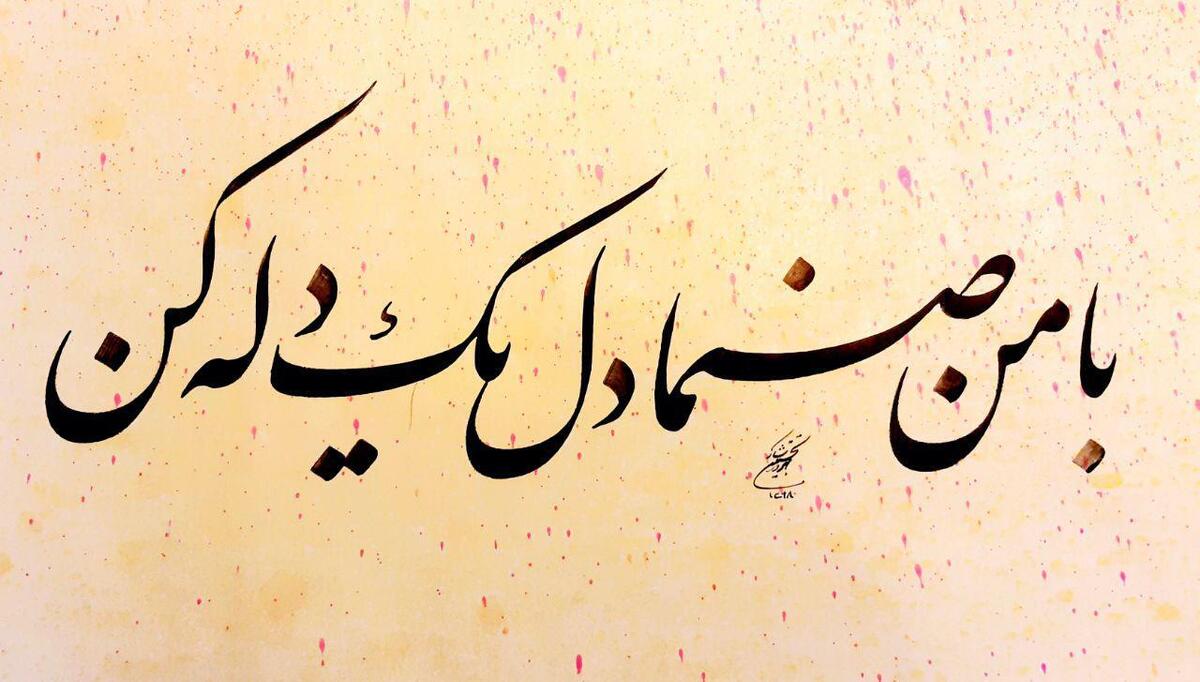 با من صنما دل یک دله کن